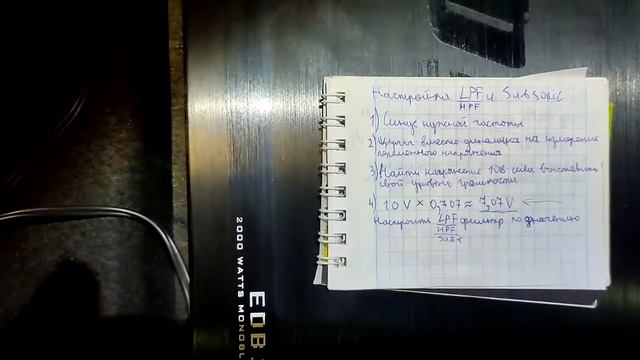 Настройка LPF и Subsonic
HPF
1) Синус нужной частоты
2) Щупы вместо динамика на измерение
переменного напряжения
3) Найти напряжение 10В или выставить
свой уровень громкости
4) 10 V × 0,707 ≈ 7,07 V
Настроить LPF фильтр по значению
HPF
Sub
2000 WATTS MONOBL
EDB